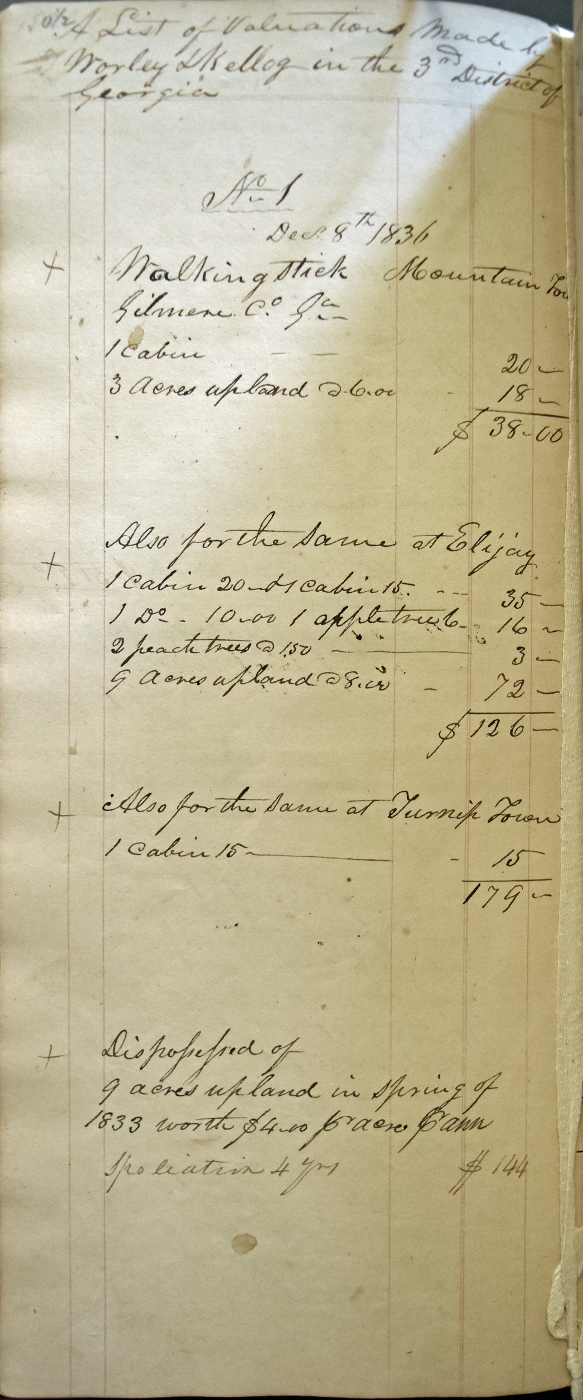 A List of Valuations Made by
Worley & Kellog in the 3rd District of
Georgia
No 1
Decr 8th 1836
+ Walkingstick Mountain Tow
Gilmere Co Ga
1 Cabin — — 20 —
3 Acres upland @ 6.00 - 18 —
$ 38.00
+ Also for the Same at Elijay
1 Cabin 20 - & 1 Cabin 15. - - 35 —
1 Do - 10.00 1 apple tree 6 - 16 —
2 peach trees @ 1.50 — 3 —
9 Acres upland @ 8.00 - 72 —
$ 126 —
+ Also for the Same at Turnip Town
1 Cabin 15 — - 15
179 —
+ Dispossessed of
9 acres upland in Spring of
1833 worth $4.00 pr acre pr ann
Spoliation 4 yrs $ 144